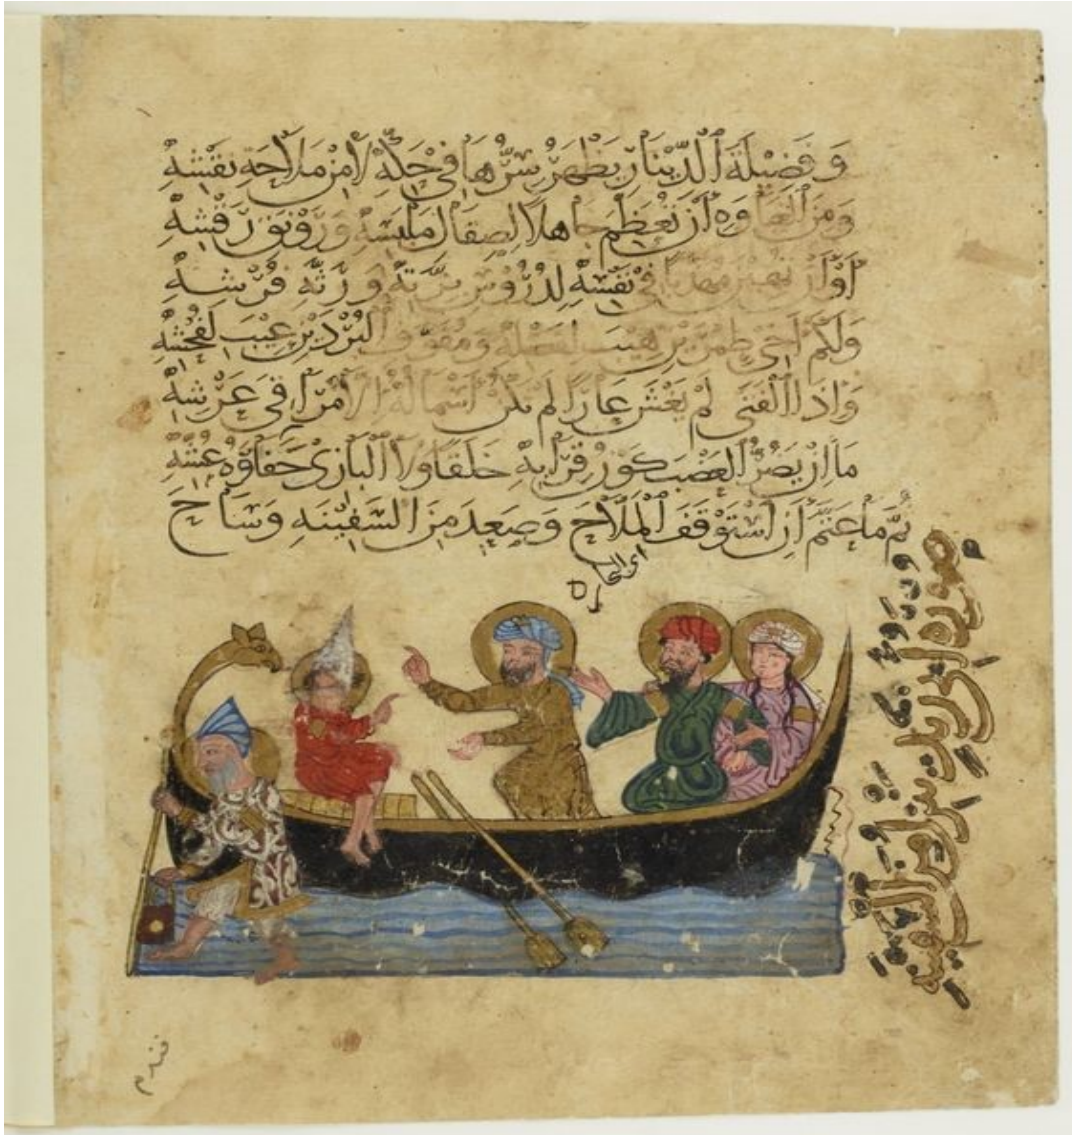 وَفَضِيْلَةَ الدِّيْنَارِ يَظْهَرُ سِرُّهَا فِي حَكِّهِ لَا مِنْ مَلَاحَةِ نَقْشِهِ
وَمِنَ الغباوَةِ أَنْ تُعَظِّمَ جَاهِلًا لِصِقَالِ مَلْبَسِهِ وَرَوْنَقِ رَقْشِهِ
أَوْ أَنْ تُهِيْنَ مهذبًا فِي نَفْسِهِ لِدُرُوْسِ بِزَّتِهِ وَرَثَّةِ فُرْشِهِ
وَلَكَمْ أَخِي طِمْرَيْنِ هِيْبَ لِفَضْلِهِ وَمُفَوَّفِ البُرْدَيْنِ عِيْبَ لِفُحْشِهِ
وَإِذَا الْفَتَى لَمْ يَغْشَ عَارًا لَمْ تَكُنْ أَسْمَالُهُ إِلَّا مَرَاقِيَ عَرْشِهِ
مَا إِنْ يَضُرُّ الْعَضْبَ كَوْنُ قِرَابِهِ خَلَقًا وَلَا الْبَازِيَ عُشِّهِ
ثُمَّ مَا عَتَّمَ أَنِ اسْتَوْقَفَ الْمَلَّاحَ وَصَعِدَ مِنَ السَّفِيْنَةِ وَسَاحَ
صورة ابي زيد من السفينه
فندم